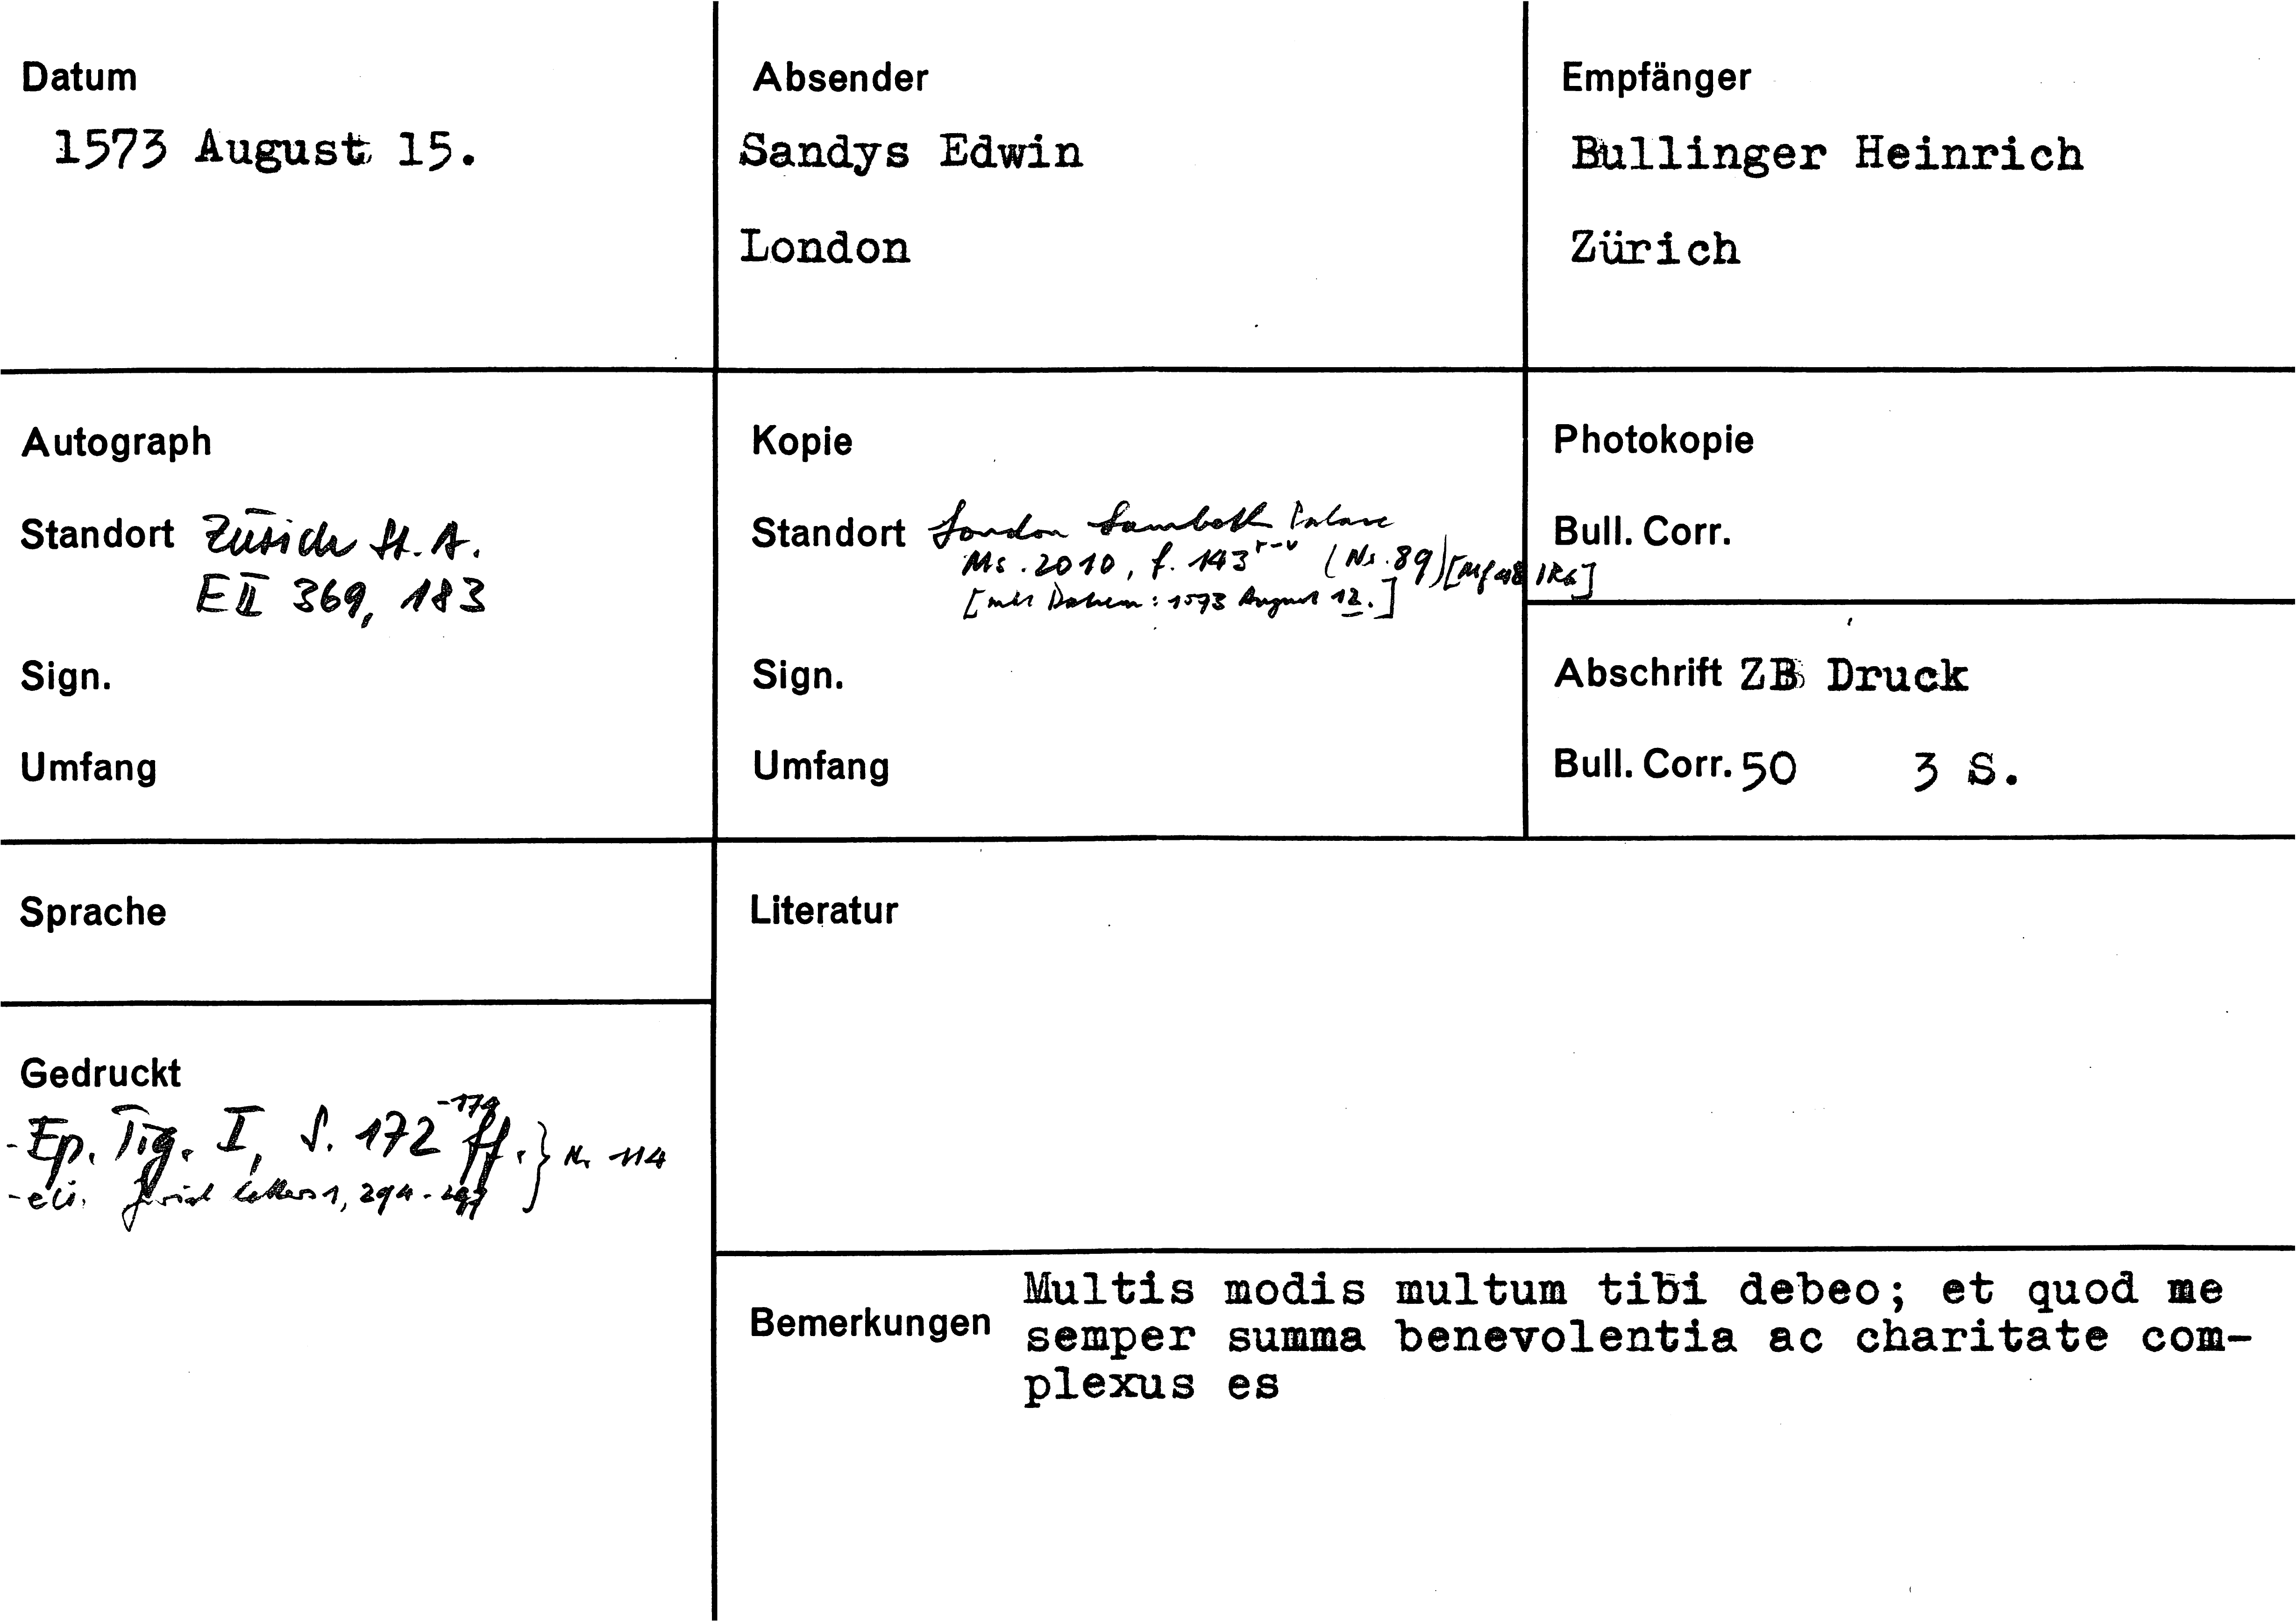 Datum
1573 August 15.
Absender
Sandys Edwin
London
Empfänger
Bullinger Heinrich
Zürich
Autograph
Standort Zürich St. A.
E II 369, 183
Sign.
Umfang
Kopie
Standort London Lambeth Palace
Ms. 2010, f. 143 r-v (Nr. 89) [Mf 48 IRG]
[mit Datum: 1573 August 12.]
Sign.
Umfang
Photokopie
Bull. Corr.
Abschrift ZB Druck
Bull. Corr. 50 3 S.
Sprache
Gedruckt
- Ep. Tig. I, S. 172 -174 ff. } Nr 114
- Zurich Letters 1, 294-297
Literatur
Bemerkungen Multis modis multum tibi debeo; et quod me
semper summa benevolentia ac charitate com-
plexus es